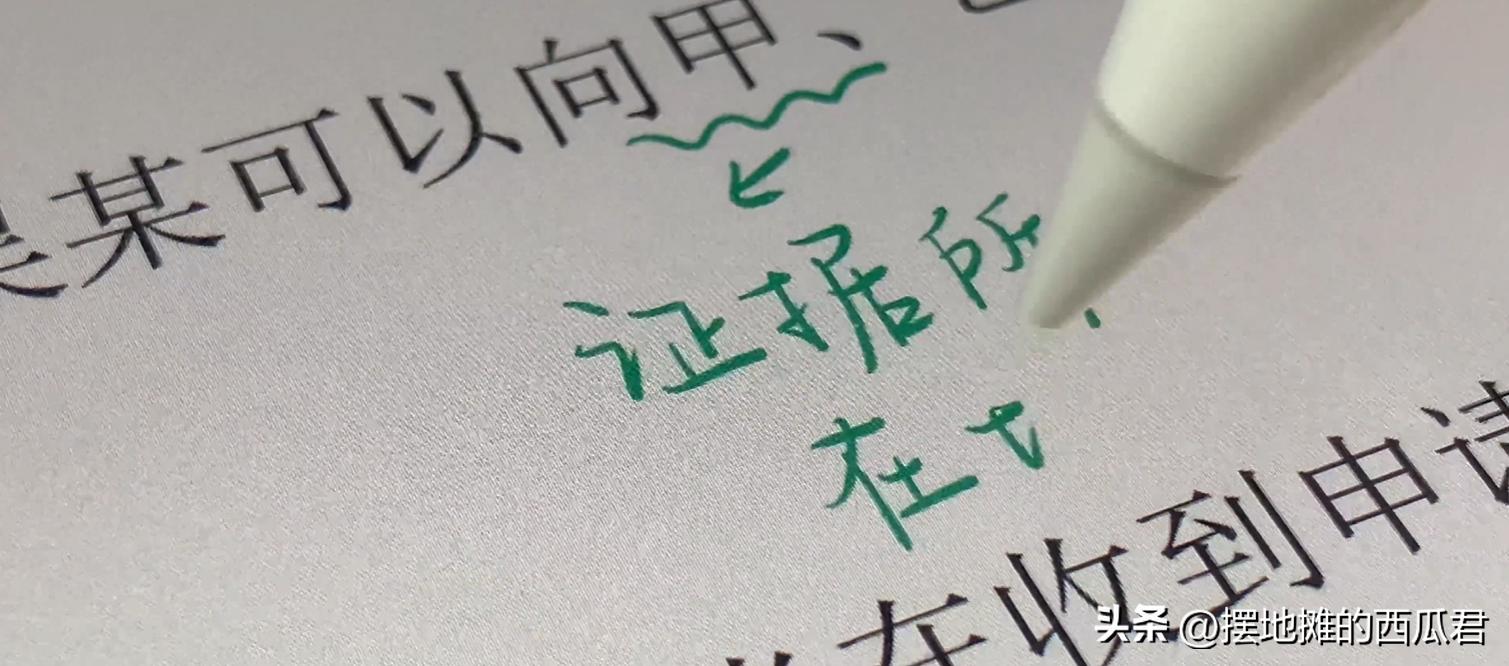 某可以向甲、
证据所
在
在收到申请
头条 @摆地摊的西瓜君